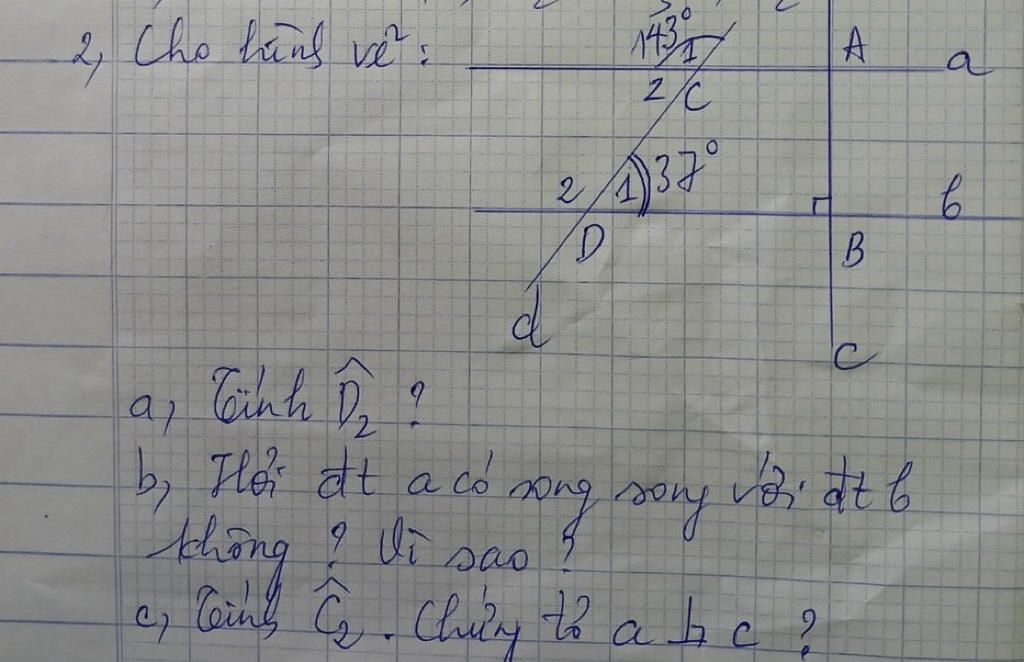 2, Cho hình vẽ:
143° 1 A a
2 C
2 1 37° b
D B
d
C
a, Tính D̂₂ ?
b, Hỏi đt a có song song với đt b
không ? Vì sao ?
c, Tính Ĉ₂. Chứng tỏ a ⊥ c ?